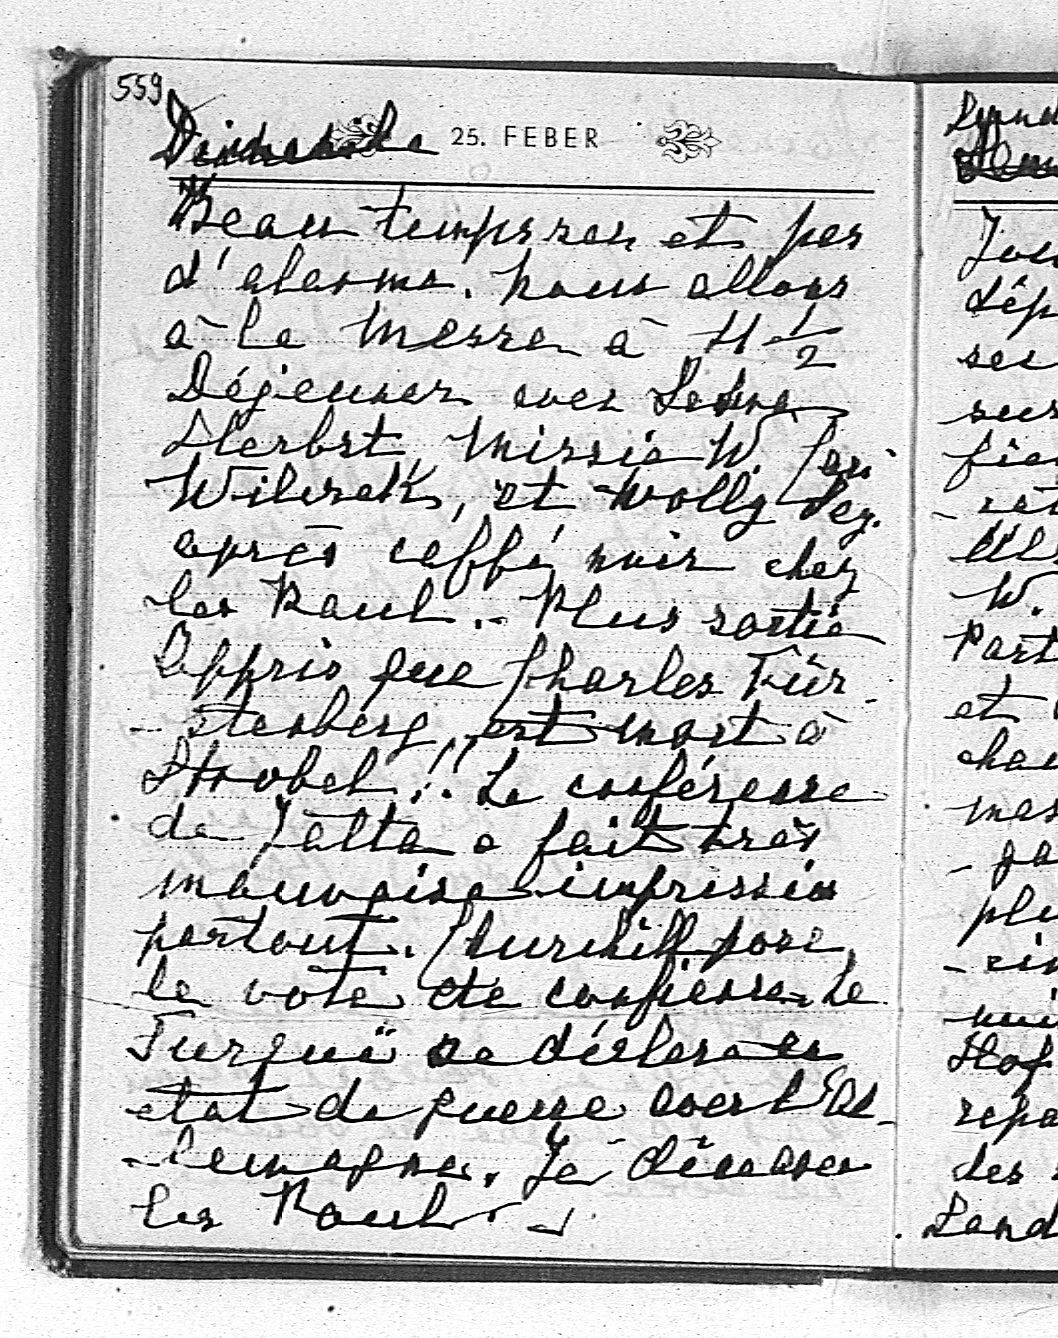 559
Dimanche 25. FEBER
Beau temps sec et pas
d'alarme. Nous allons
à la Messe à 11 1/2
Déjeuner avec
Herbst, Missie W.
Wilczek, et Wolly Sey.
après caffé noir chez
les Raoul.- Plus sortie
Appris que Charles Für
-stenberg est mort à
Strobel!! La conférence
de Jalta a fait très
mauvaise impression
partout. Churchill pose
le vote de confience. La
Turquï se déclare en
état de guerre avec l'Al
-lemagne. Je dîne avec
les Raoul.
Lund
Jou
dép
ses
sur
fian
W.
Part
et
chau
mas
plu
Hof
repa
des
Land